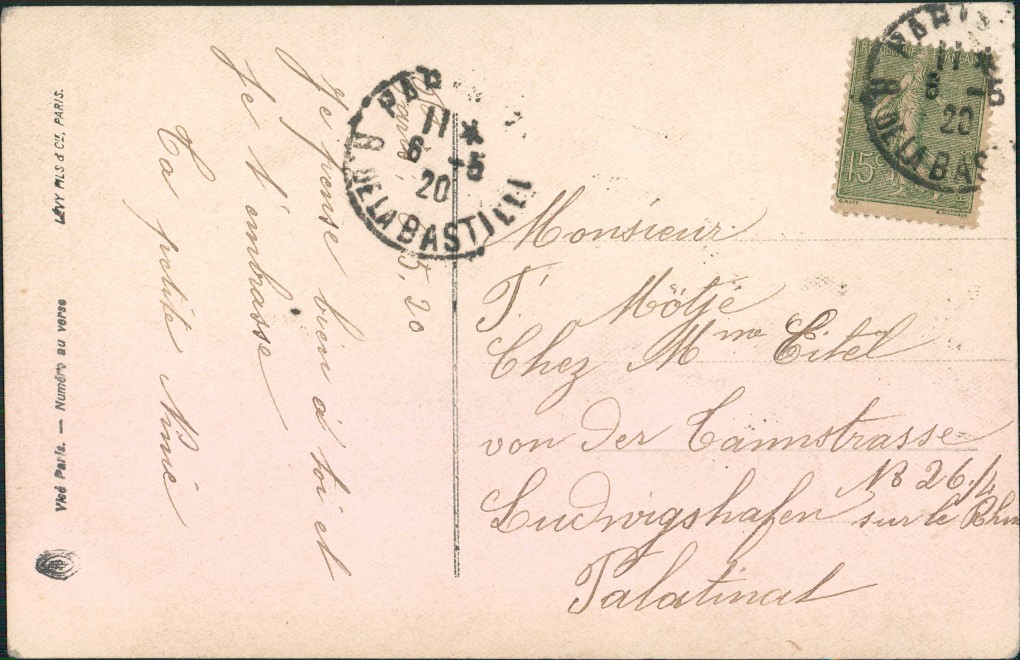 LÉVY FILS & Cie, PARIS.
Visé Paris. — Numéro au verso
Paris, 5.20
Je pense bien à toi et
Je t'embrasse
Ta petite Nini
PARIS
11 *
6 -5
20
R. DE LA BASTILLE
PARIS
11 *
6 -5
20
R. DE LA BAS
15c
Monsieur
T. Mötjé
Chez Mme Eitel
von der Tannstrasse
No 26/4
Ludwigshafen sur le Rhin
Palatinat